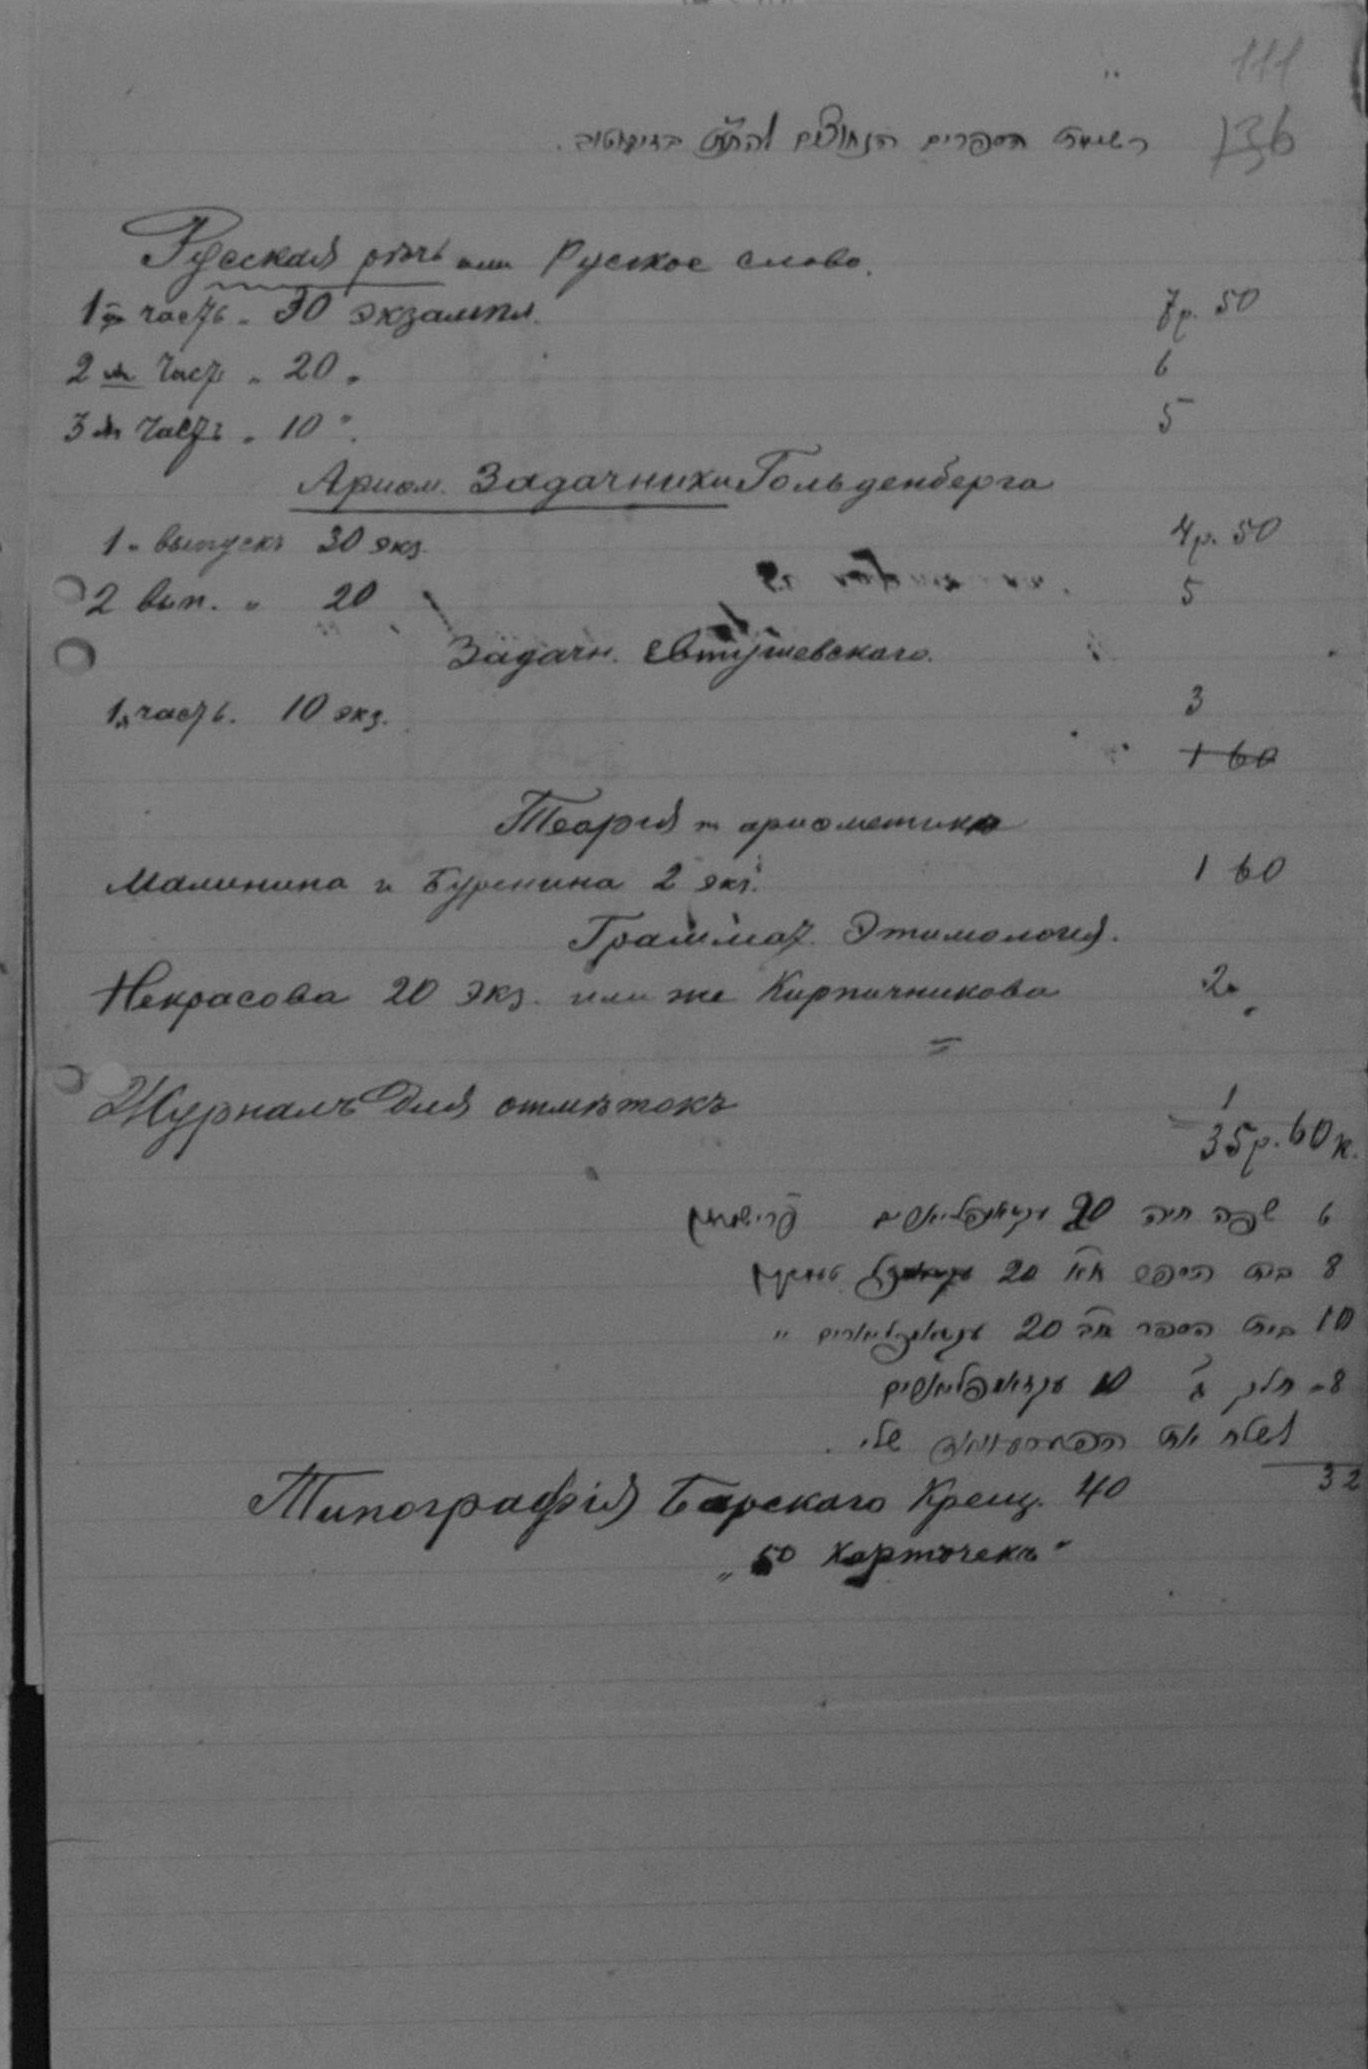 111
136
רשימת הספרים הנחוצים להת״ת
Русская рѣчь или Русское слово.
1ая часть „ 30 экземпл. 7р. 50
2ая част „ 20 „ 6
3ья часть „ 10 „ 5
Ариѳм. Задачники Гольденберга
1й выпускъ 30 экз. 4р. 50
2 вып. „ 20 5
Задачн. Евтушевскаго.
1я часть. 10 экз. 3
1 60
Теорія ариѳметики
Малинина и Буренина 2 экз. 1 60
Граммат. Этимологія.
Некрасова 20 экз. или же Кирпичникова 2
Журналъ для отмѣтокъ 1
35р. 60к.
6 שפה חיה 20 עקזעמפליארים
8 בית הספר ח״א 20
10 בית הספר ח״ב 20 עקזעמפליארים "
8 חלק ג׳ 10 עקזעמפליארים
לשלח את שלי.
32
Типографія Барскаго Крещ. 40
„ 50 карточекъ "